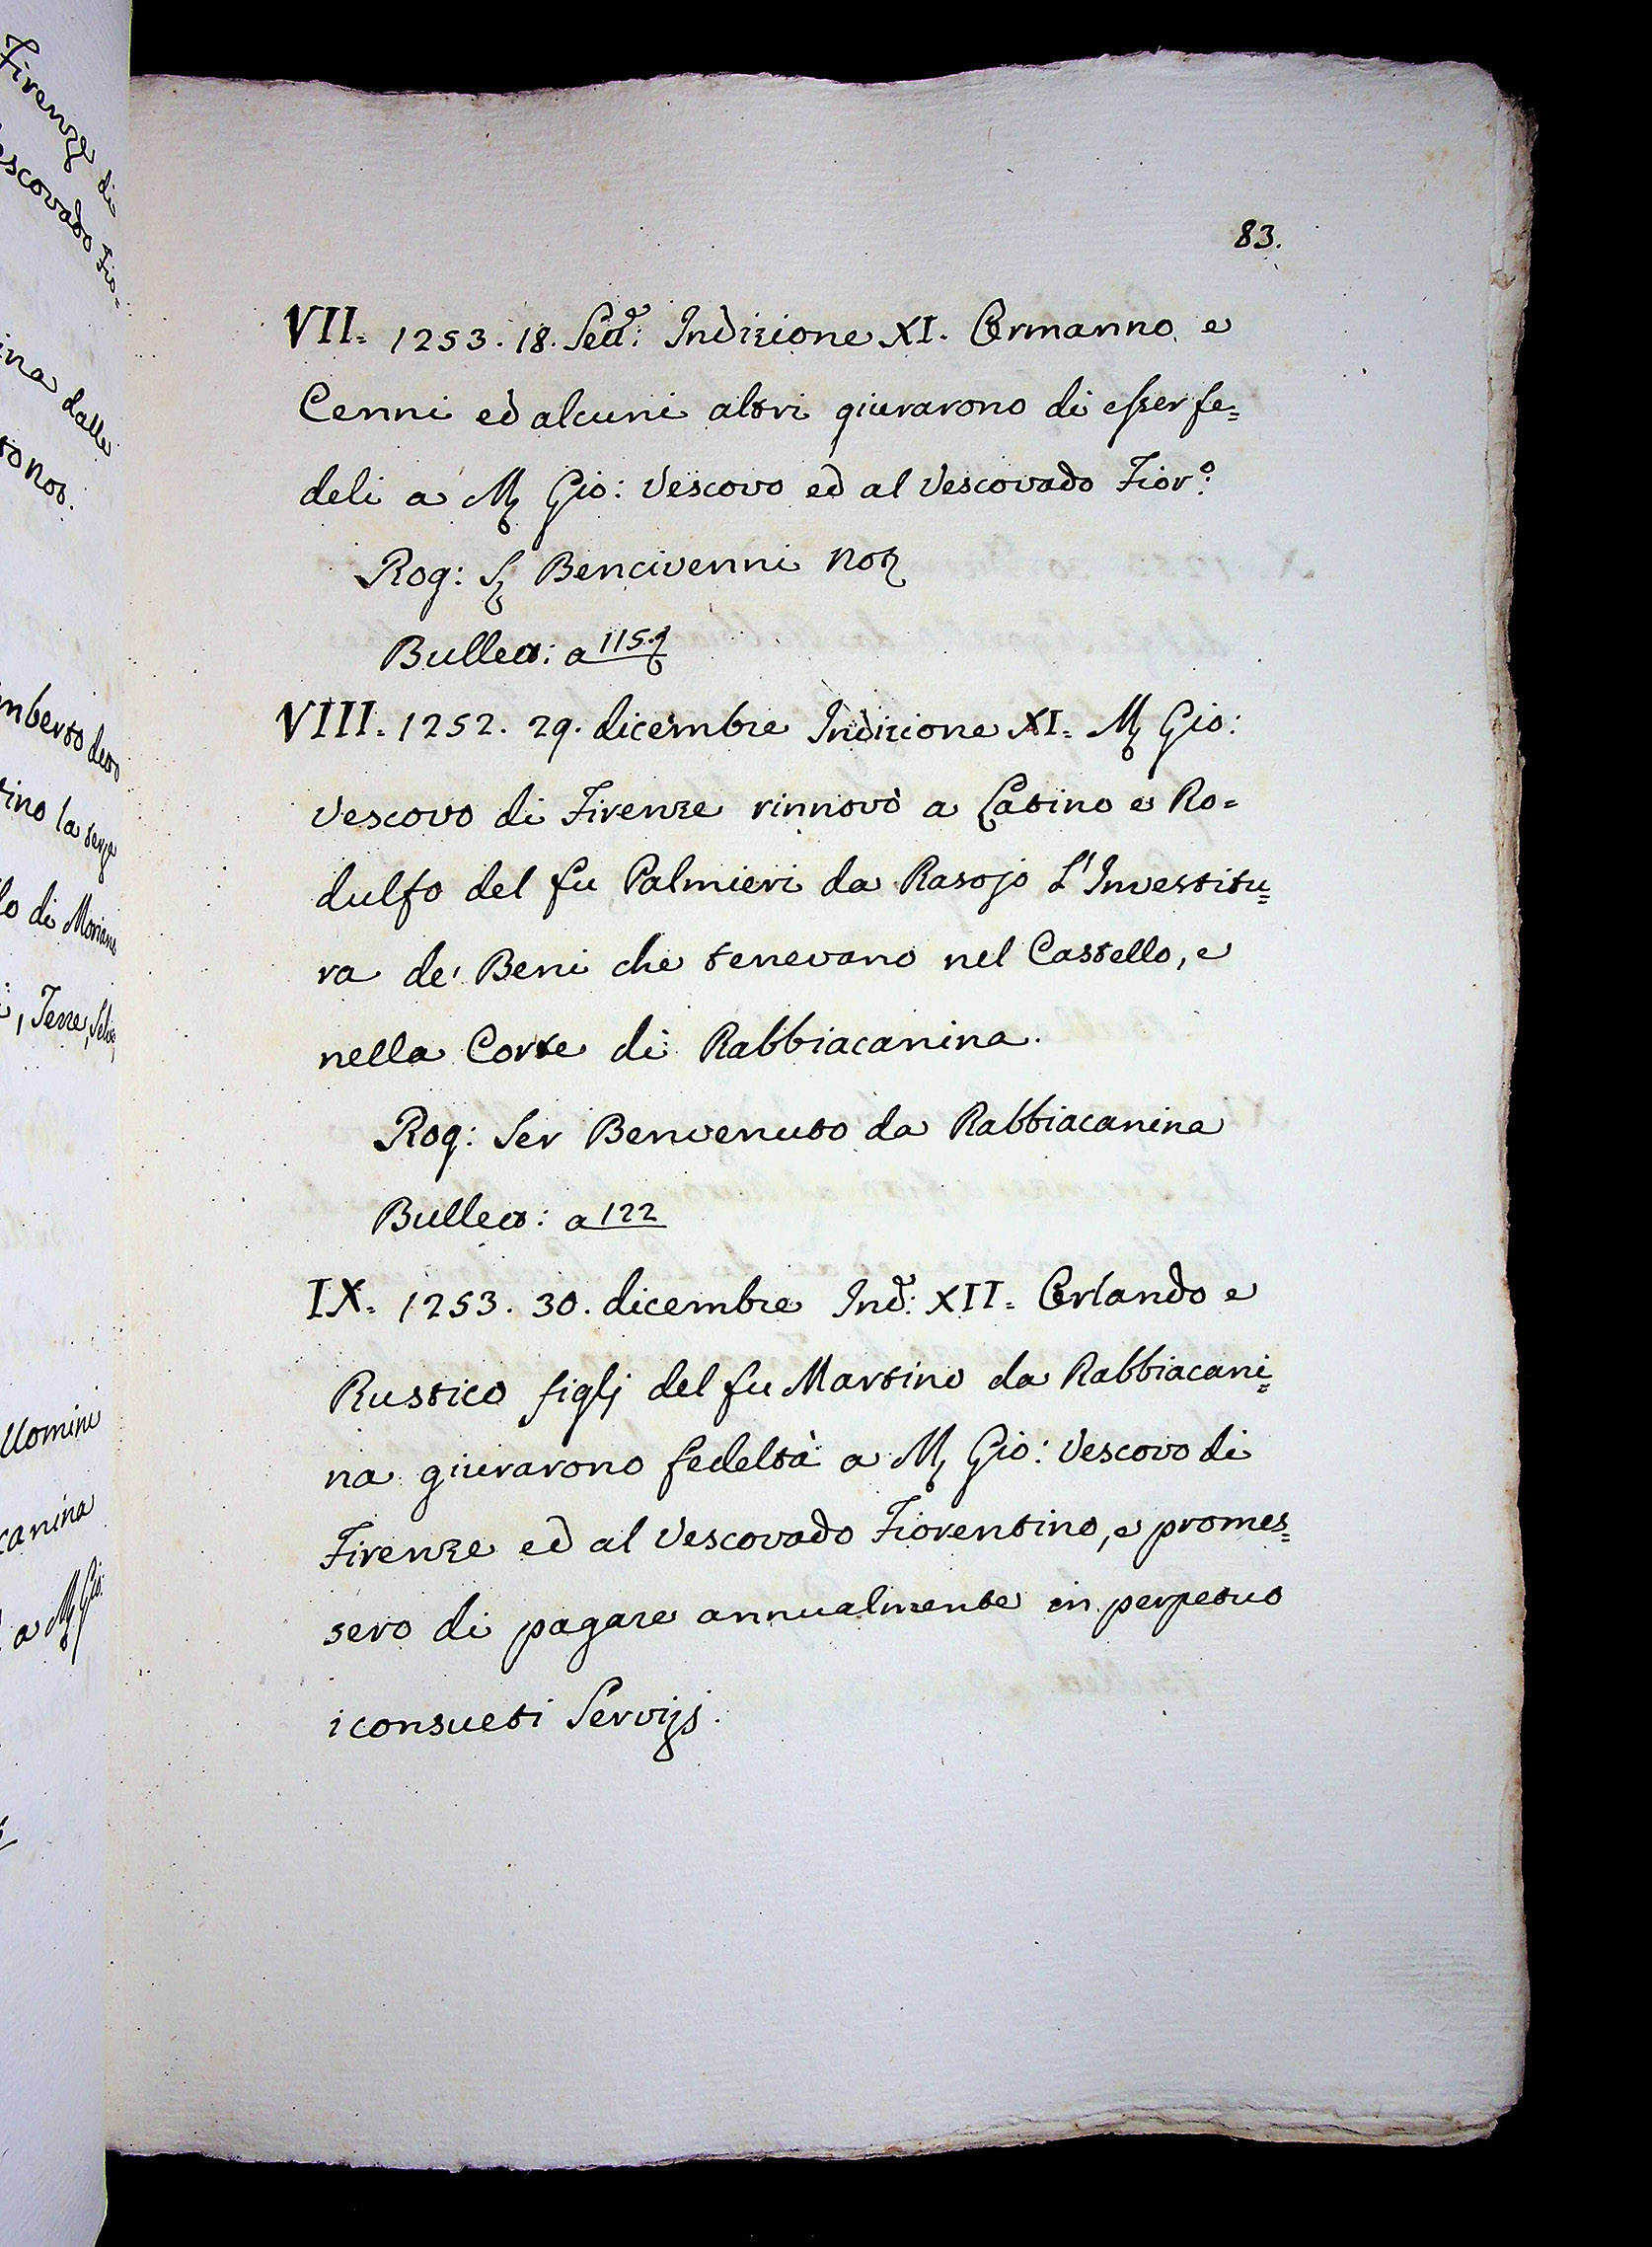 Firenze di
escovado Fio-
ina dalli
to not.
mberto del
tino la terza
lo di Moriano
i, Terre, Selve,
Uomini
canina
a M Gio:
83.
VII. 1253. 18. Indizione XI. Ormanno e
Cenni ed alcuni altri giurarono di esser fe=
deli a M Gio: Vescovo ed al Vescovado Fior:º
Rog: S Bencivenni Not
Bullett: a 115.t
VIII. 1252. 29. dicembre Indizione XI. M Gio:
Vescovo di Firenze rinnovò a Latino e Ro=
dulfo del fu Palmieri da Rasojo L'Investitu=
ra de' Beni che tenevano nel Castello, e
nella Corte di Rabbiacanina.
Rog: Ser Benvenuto da Rabbiacanina
Bullett: a 122
IX. 1253. 30. dicembre Ind: XII. Orlando e
Rustico figlj del fu Martino da Rabbiacani=
na giurarono fedeltà a M Gio: Vescovo di
Firenze ed al Vescovado Fiorentino, e promes=
sero di pagare annualmente in perpetuo
i consueti Servizj.